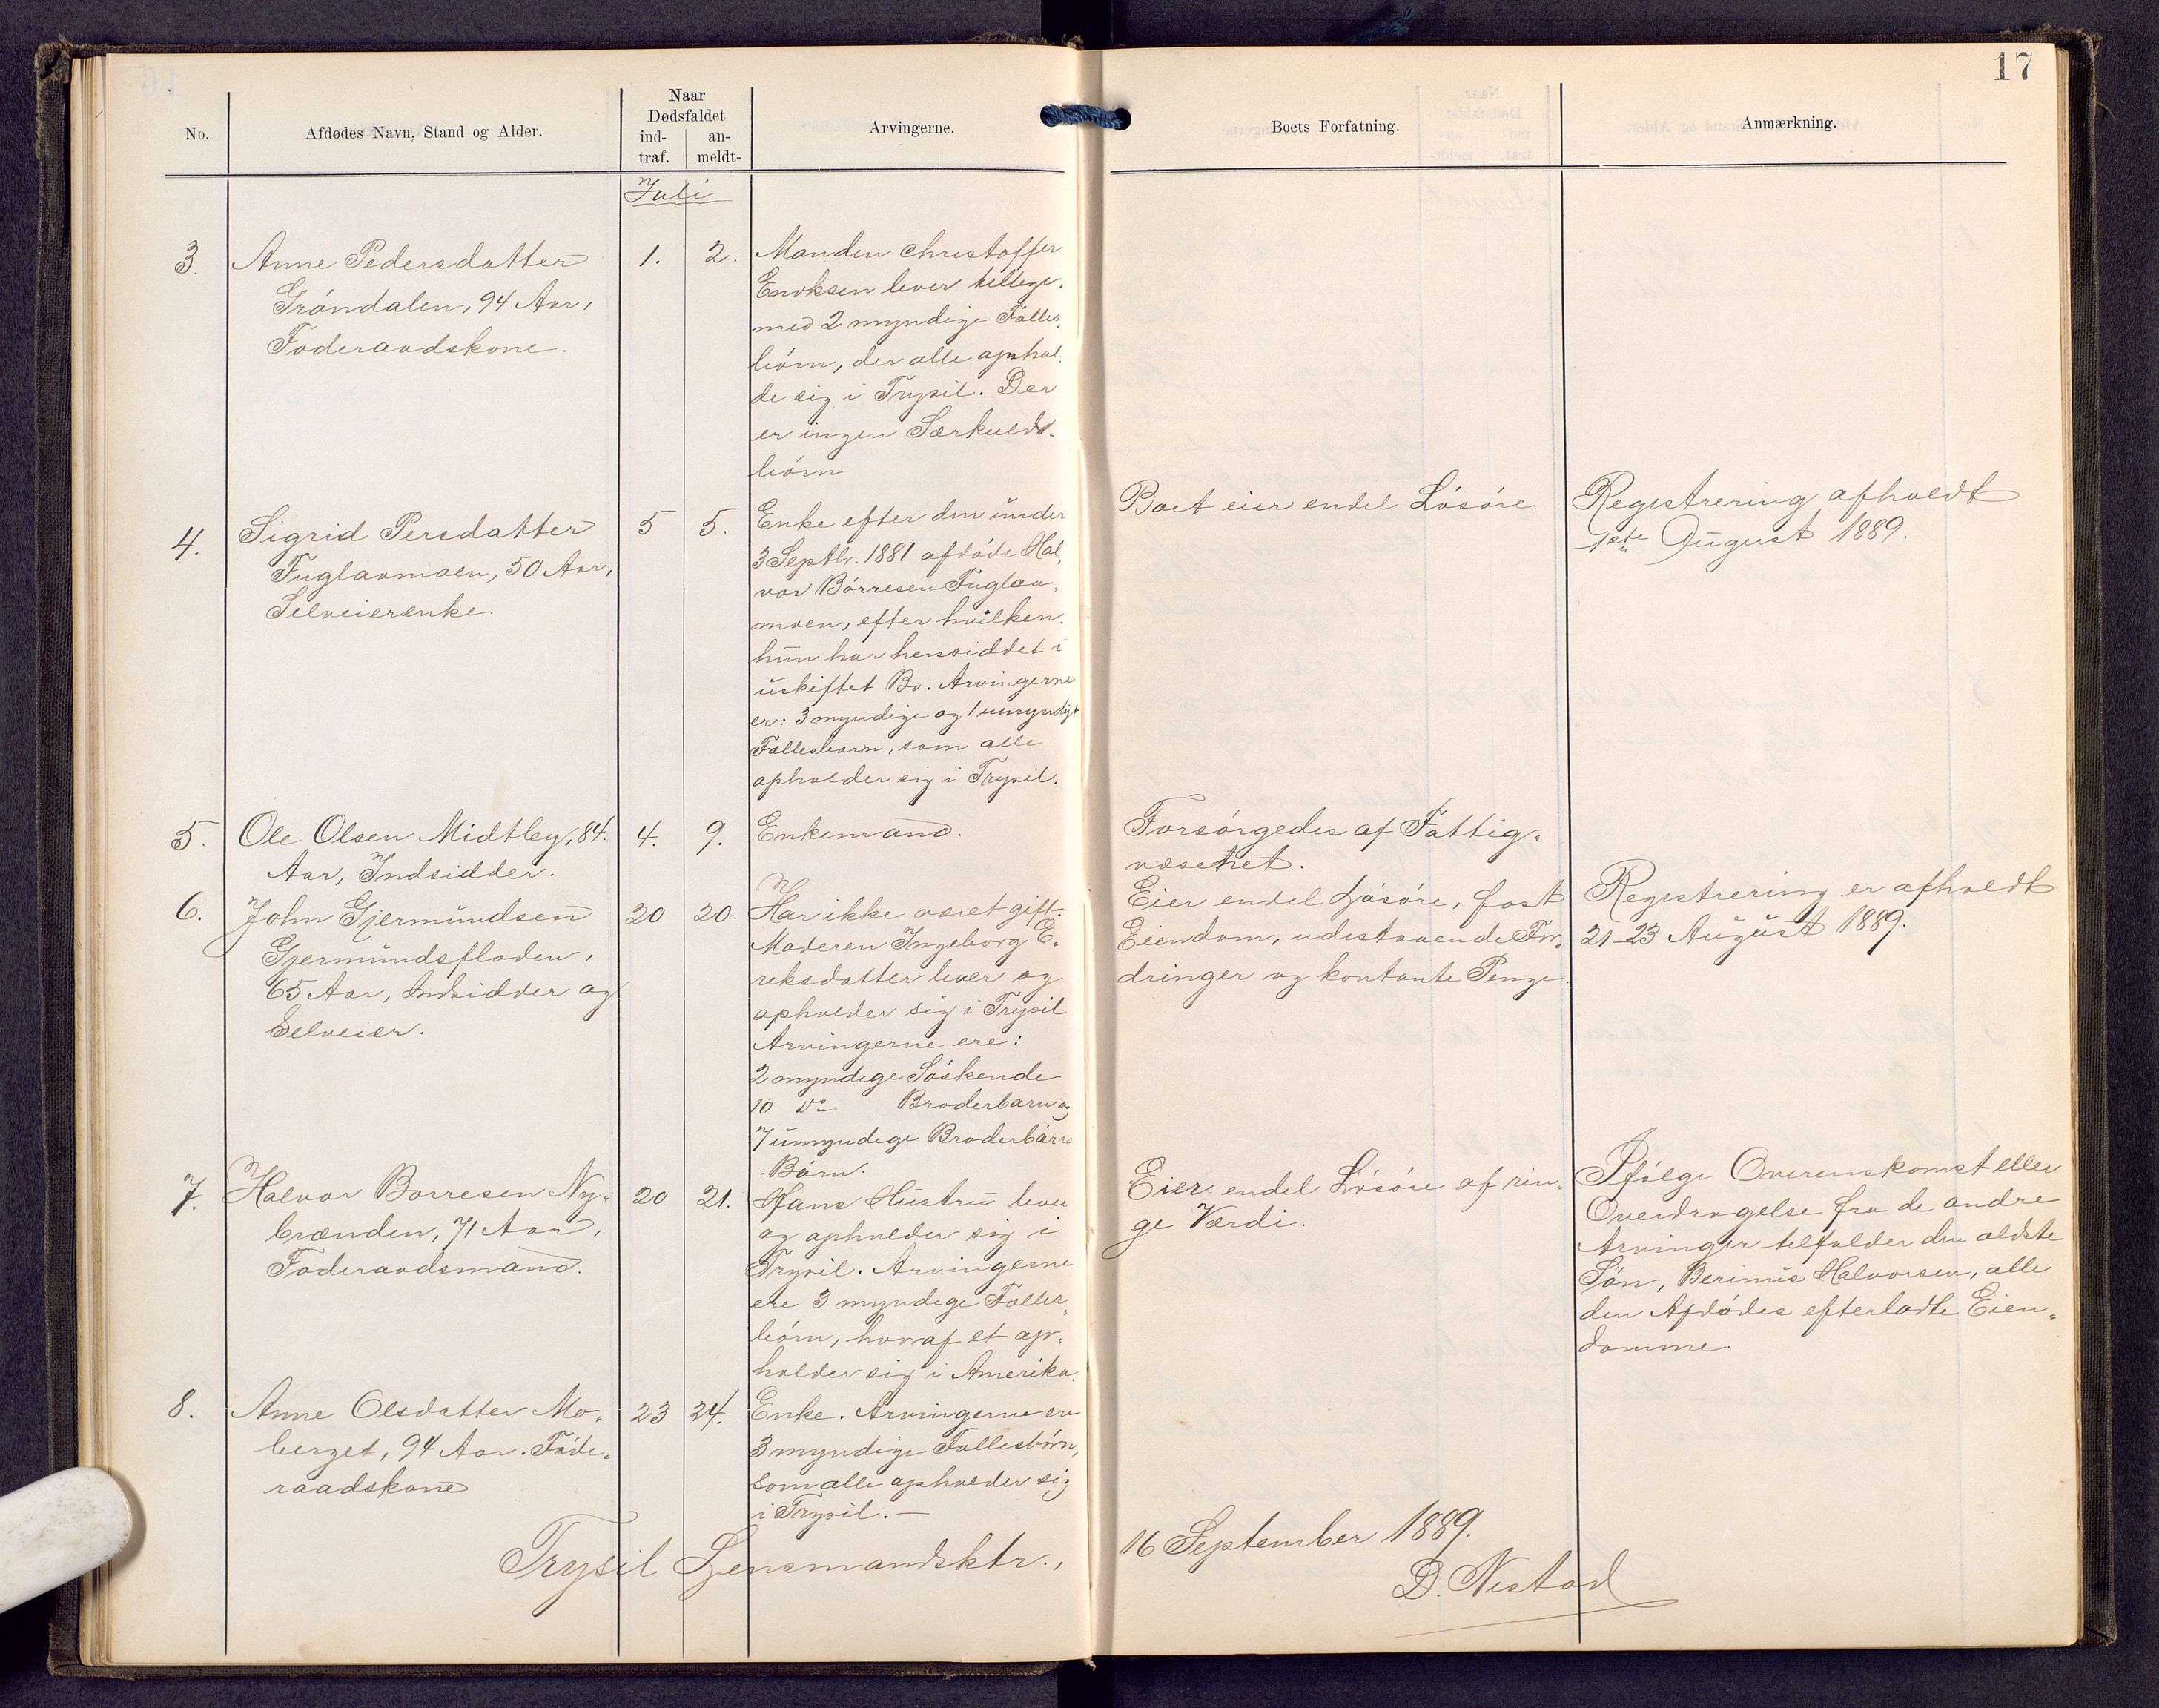 17
No.
Afdødes Navn, Stand og Alder.
Naar
Dødsfaldet
ind-
traf.
an-
meldt-
Arvingerne.
Boets Forfatning.
Anmærkning.
Juli
3.
Anne Pedersdatter
Gröndalen, 94 Aar,
Foderaadskone.
1.
2.
Manden Christoffer
Enoksen lever tillige
med 2 myndige Fælles,
börn, der alle ophol,
de sig i Trysil. Der
er ingen Særkulds-
börn
4.
Sigrid Persdatter
Fuglaamoen, 50 Aar,
Selveierenke.
5
5.
Enke efter den under
3 Septbr. 1881 afdöde Hal,
vor Börresen Fuglaa,
moen, efter hvilken
hun har hensiddet i
uskiftet Bo. Arvingerne
er: 3 myndige og 1 umyndigt
Fællesbarn, som alle
opholder sig i Trysil.
Boet eier endel Lösöre
Registrering afholdt
1ste August 1889.
5.
Ole Olsen Midtby, 84.
Aar, Indsidder.
4.
9.
Enkemand.
Forsörgedes af Fattig-
væsenet.
6.
John Gjermundsen
Gjermundsfloden,
65 Aar, Indsidder og
Selveier.
20
20.
Har ikke været gift.
Moderen Ingeborg E-
reksdatter lever og
opholder sig i Trysil
Arvingerne ere:
2 myndige Söskende
10 do Broderbarn og
7 umyndige Broderbörns
Börn.
Eier endel Lösöre, fast
Eiendom, udestaaende For-
dringer og kontante Penge.
Registrering er afholdt
21-23 August 1889.
7.
Halvor Borresen Ny-
brænden, 71 Aar,
Foderaadsmand.
20
21.
Hans Hustru lever
og opholder sig i
Trysil. Arvingerne
ere 3 myndige Fælles,
börn, hvoraf et op-
holder sig i Amerika.
Eier endel Lösöre af rin-
ge Værdi.
Ifölge Overenskomst eller
Overdragelse fra de andre
Arvinger tilfalder den ældste
Sön, Berinus Halvorsen, alle
den Afdödes efterladte Eien-
domme.
8.
Anne Olsdatter Mo-
berget, 94 Aar. Föde-
raadskone
23
24.
Enke. Arvingerne ere
3 myndige Fællesbörn,
som alle opholder sig
i Trysil. —
Trysil Lensmandsktr.,
16 September 1889.
D. Nestad